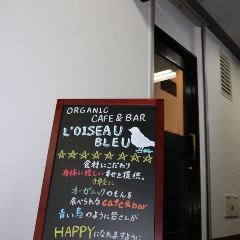 ORGANIC
CAFE & BAR
L'OISEAU
BLEU
☆☆☆☆☆☆☆☆
食材にこだわり
身体に優しい幸せ提供。
オーガニックのもんを
食べられるcafe&bar
青い鳥のように皆さんが
HAPPYになれますように